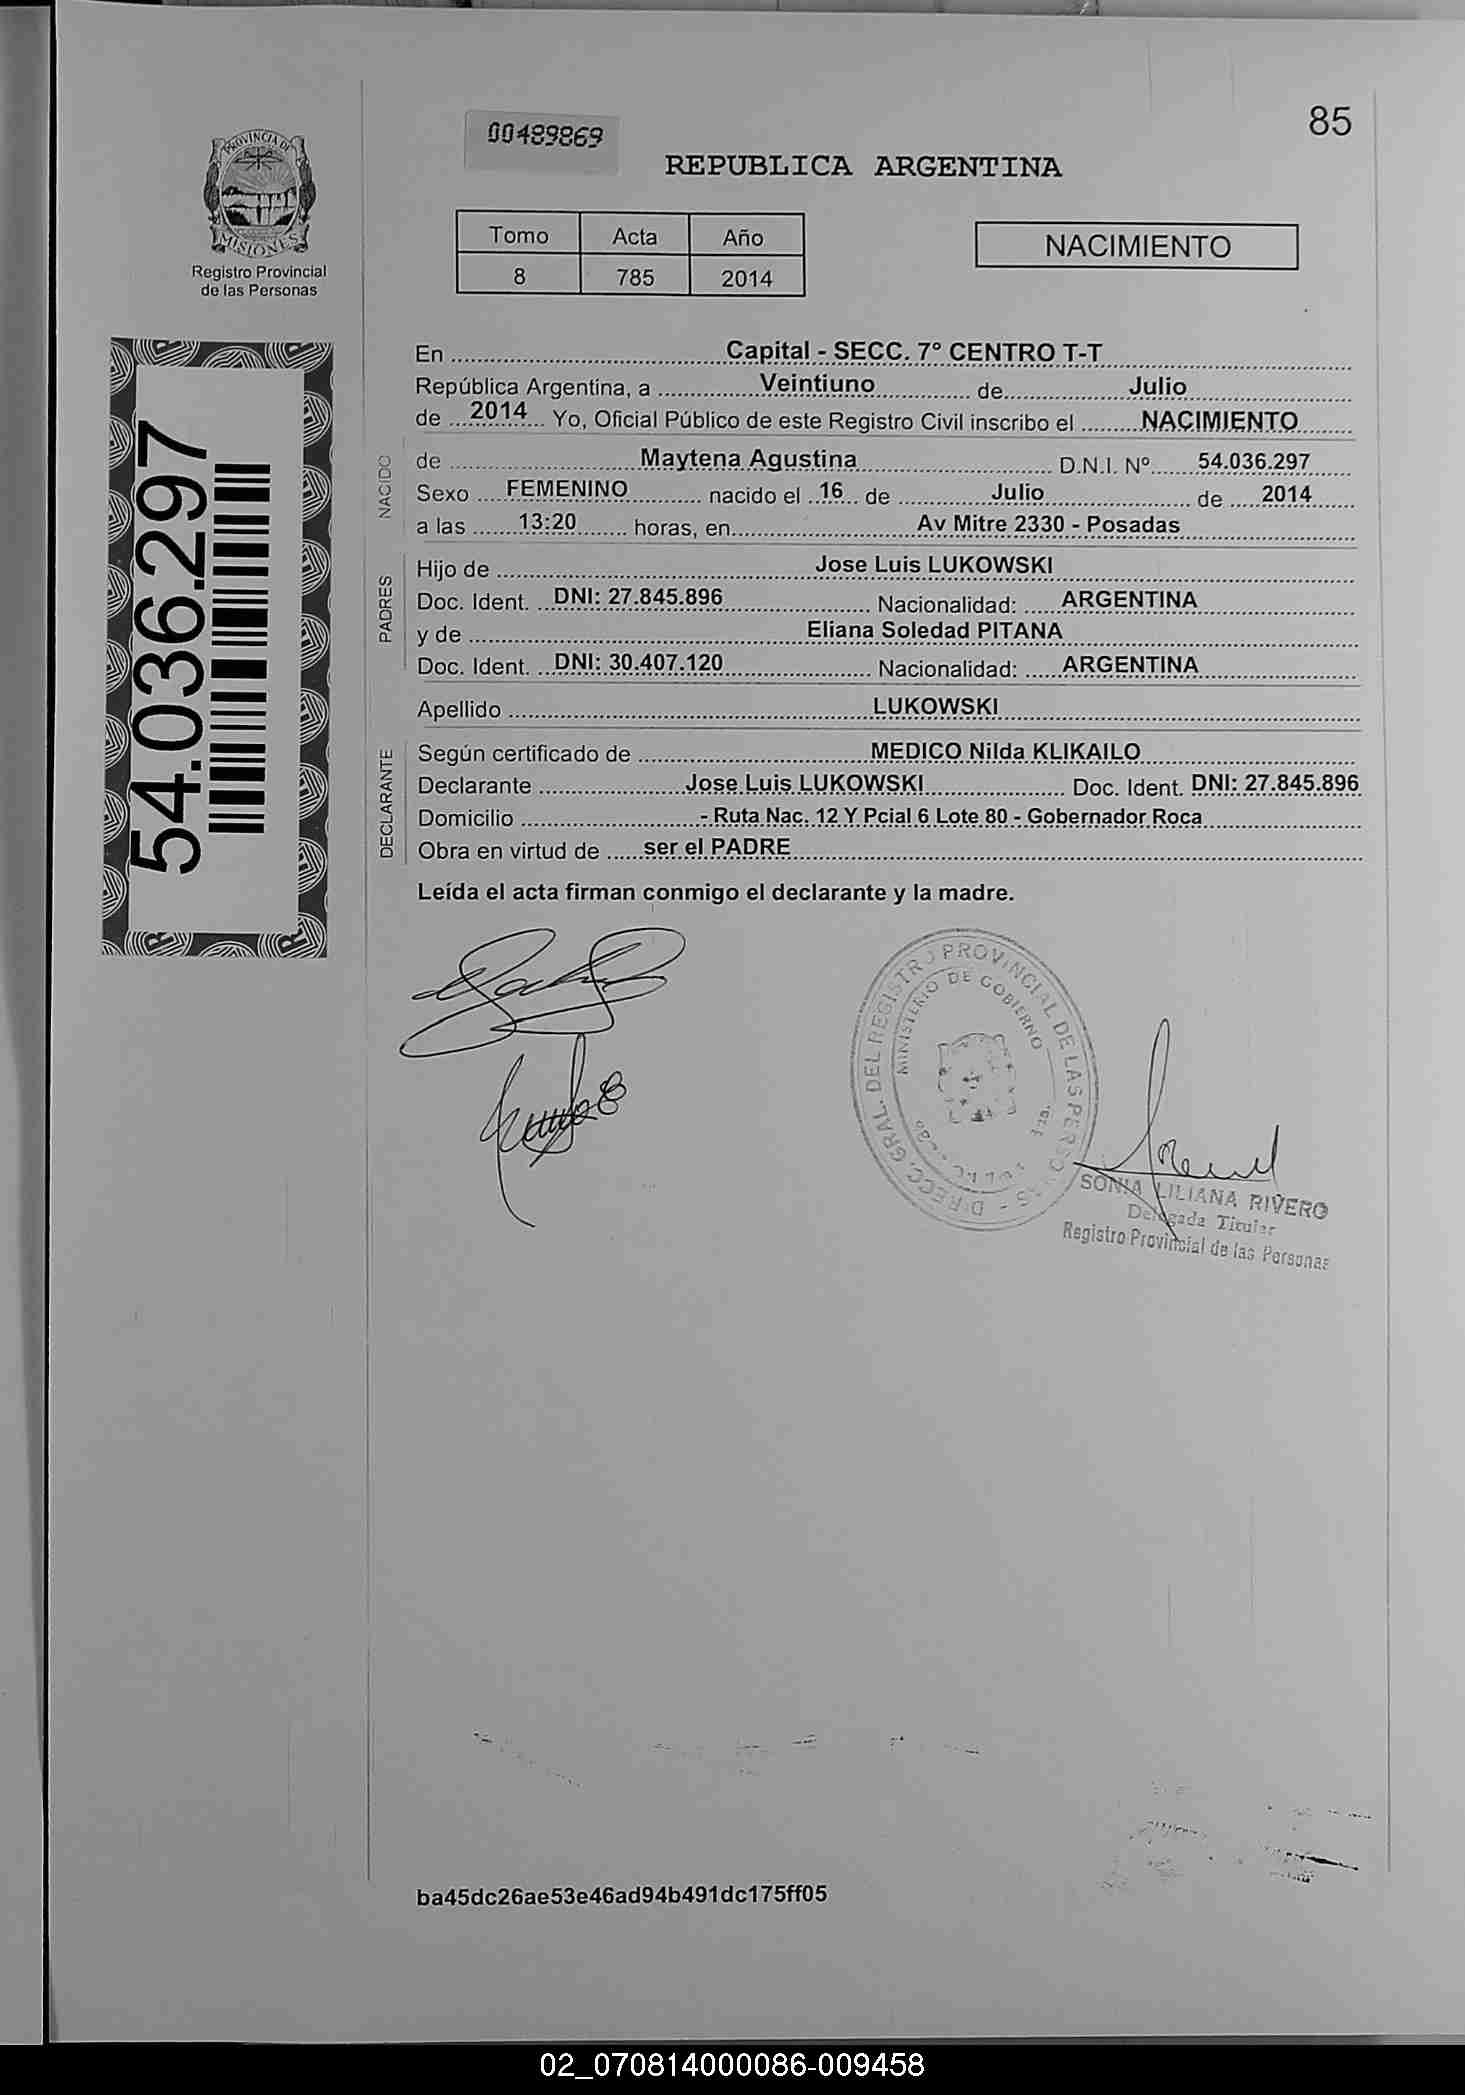 85
00489869
REPUBLICA ARGENTINA
PROVINCIA DE
MISIONES
Registro Provincial
de las Personas
Tomo Acta Año
8 785 2014
NACIMIENTO
54.036.297
En Capital - SECC. 7° CENTRO T-T
República Argentina, a Veintiuno de Julio
de 2014 Yo, Oficial Público de este Registro Civil inscribo el NACIMIENTO
NACIDO
de Maytena Agustina D.N.I. Nº 54.036.297
Sexo FEMENINO nacido el 16 de Julio de 2014
a las 13:20 horas, en Av Mitre 2330 - Posadas
PADRES
Hijo de Jose Luis LUKOWSKI
Doc. Ident. DNI: 27.845.896 Nacionalidad: ARGENTINA
y de Eliana Soledad PITANA
Doc. Ident. DNI: 30.407.120 Nacionalidad: ARGENTINA
Apellido LUKOWSKI
DECLARANTE
Según certificado de MEDICO Nilda KLIKAILO
Declarante Jose Luis LUKOWSKI Doc. Ident. DNI: 27.845.896
Domicilio - Ruta Nac. 12 Y Pcial 6 Lote 80 - Gobernador Roca
Obra en virtud de ser el PADRE
Leída el acta firman conmigo el declarante y la madre.
DIRECC. GRAL. DEL REGISTRO PROVINCIAL DE LAS PERSONAS
MINISTERIO DE GOBIERNO
SONIA LILIANA RIVERO
Delegada Titular
Registro Provincial de las Personas
ba45dc26ae53e46ad94b491dc175ff05
02_070814000086-009458